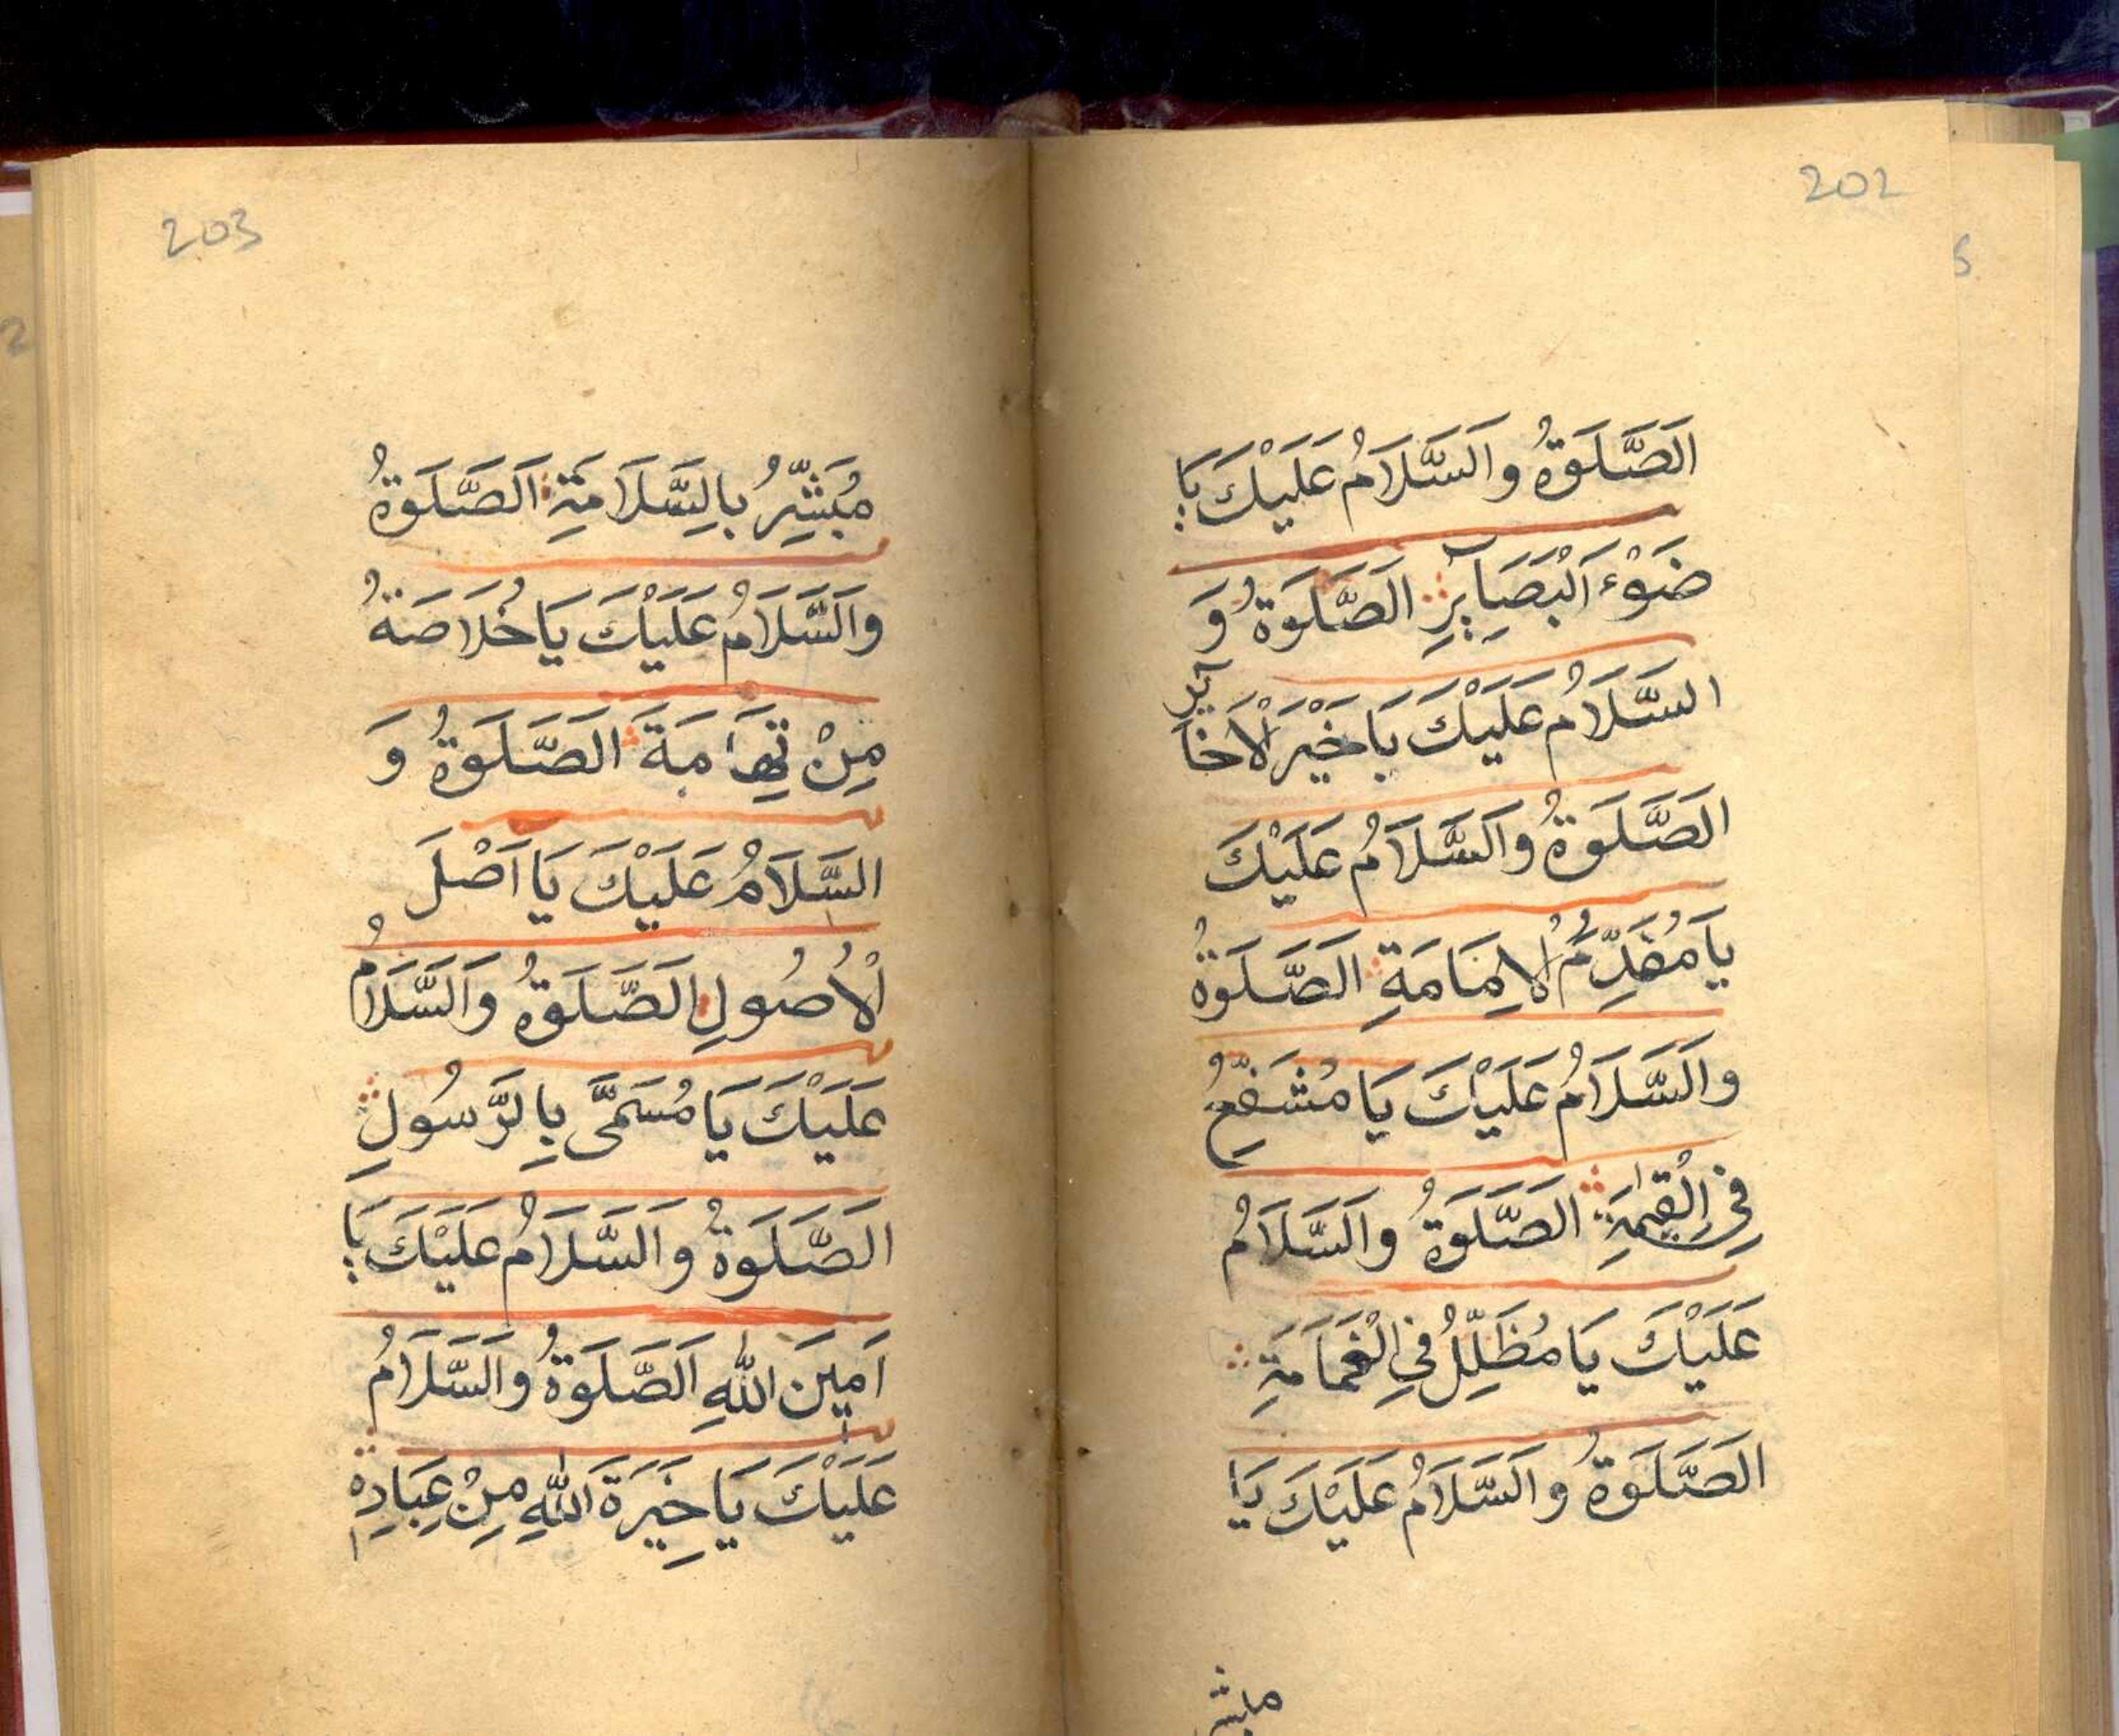 202
اَلصَّلَوةُ وَالسَّلَامُ عَلَيْكَ يَا
ضَوْءَ الْبَصَآيِرِ اَلصَّلَوةُ وَ
السَّلَامُ عَلَيْكَ يَا خَيْرَ الْاَخَآيِرِ
اَلصَّلَوةُ وَالسَّلَامُ عَلَيْكَ
يَا مُقَدِّمُ الْاِمَامَةِ اَلصَّلَوةُ
وَالسَّلَامُ عَلَيْكَ يَا مُشَفِّعُ
فِي الْقِيٰمَةِ اَلصَّلَوةُ وَالسَّلَامُ
عَلَيْكَ يَا مُظَلِّلُ فِي الْغَمَامَةِ
اَلصَّلَوةُ وَالسَّلَامُ عَلَيْكَ يَا
مبشر
203
مُبَشِّرُ بِالسَّلَامَةِ اَلصَّلَوةُ
وَالسَّلَامُ عَلَيْكَ يَا خُلَاصَةُ
مِنْ تِهَامَةَ اَلصَّلَوةُ وَ
السَّلَامُ عَلَيْكَ يَا اَصْلَ
الْاُصُولِ اَلصَّلَوةُ وَالسَّلَامُ
عَلَيْكَ يَا مُسَمَّى بِالرَّسُولِ
اَلصَّلَوةُ وَالسَّلَامُ عَلَيْكَ يَا
اَمِينَ اللّٰهِ اَلصَّلَوةُ وَالسَّلَامُ
عَلَيْكَ يَا خِيَرَةَ اللّٰهِ مِنْ عِبَادِهِ